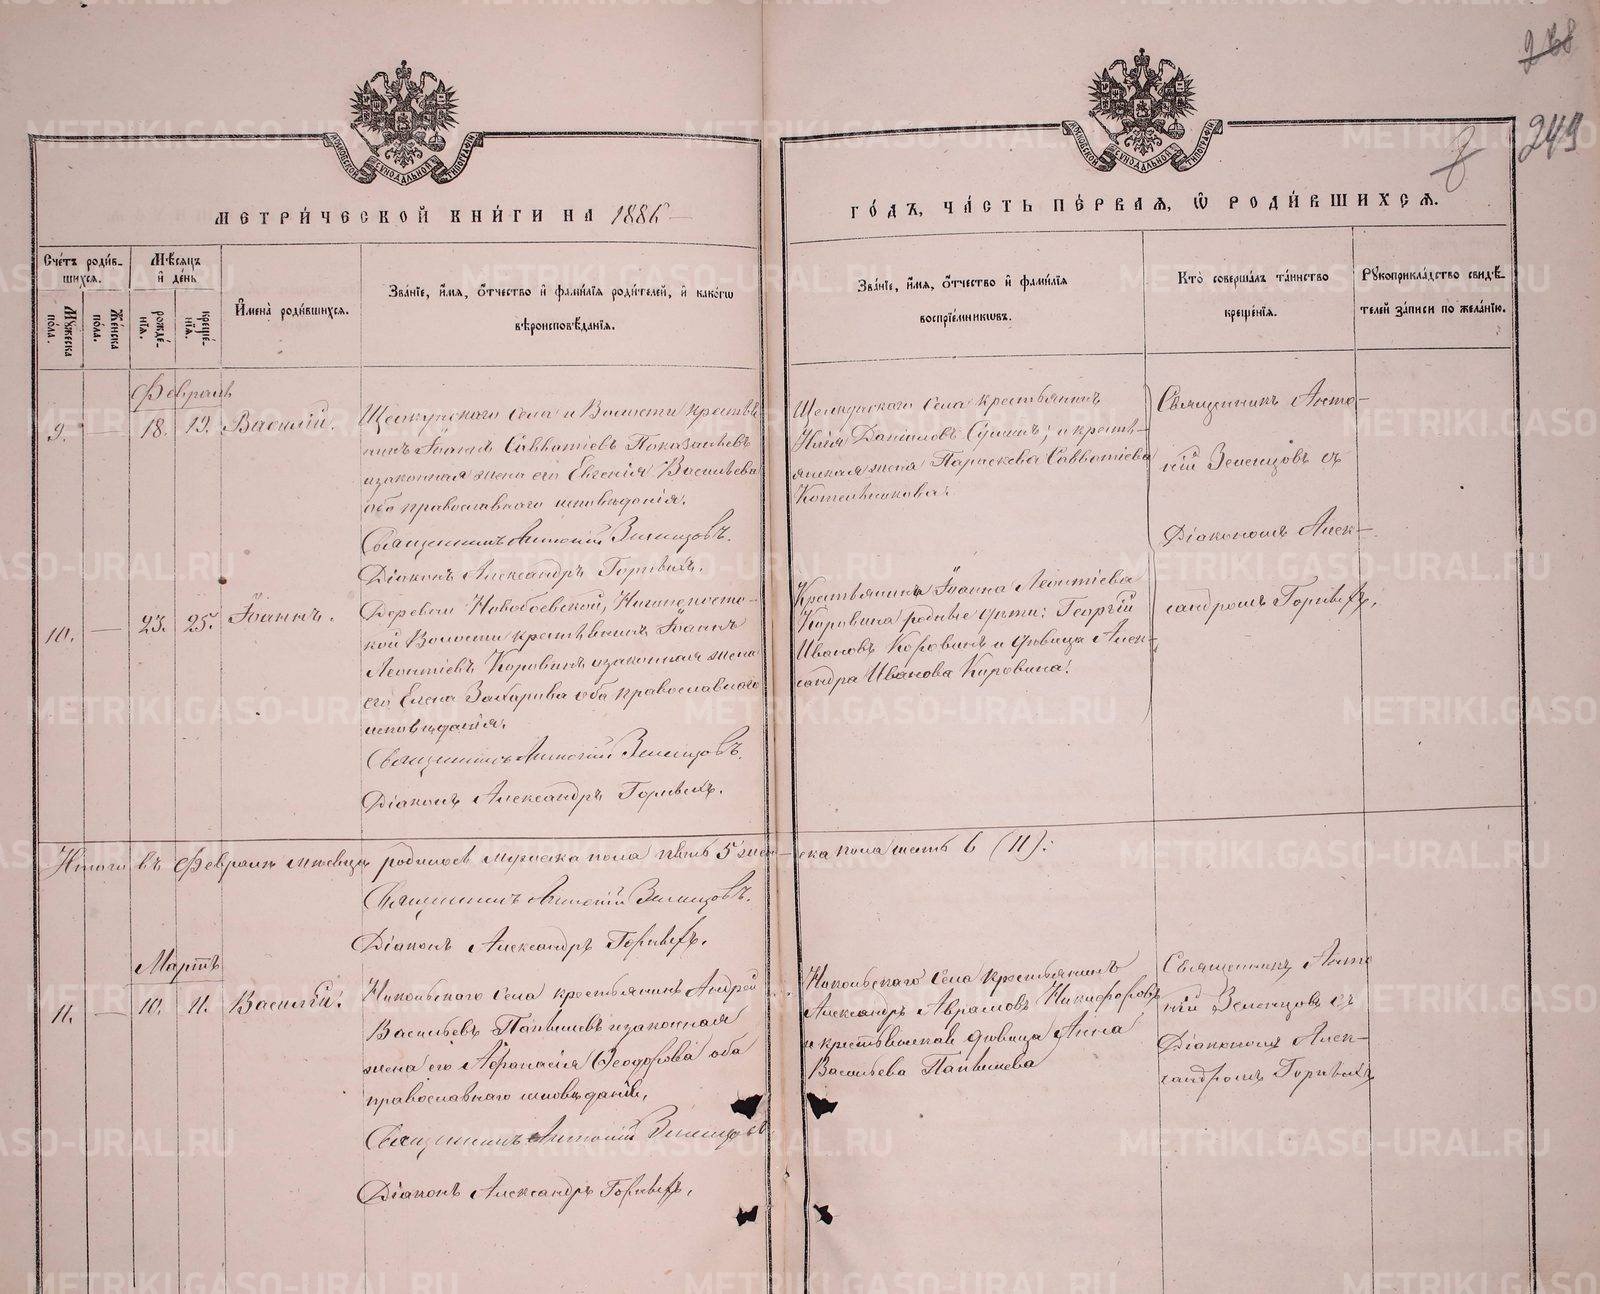 268
249
МЕТРИ́ЧЕСКОЙ КНИ́ГИ НА 1886
ГО́ДЪ, ЧА́СТЬ ПЕ́РВАЯ, Ѡ РОДИ́ВШИХСЯ.
Сче́тъ роди́в-
шихся.
Мꙋ́жеска по́ла.
Же́нска по́ла.
Мѣ́сяцъ и҆ де́нь
рожде́нїя.
креще́нїя.
И҆мена̀ роди́вшихся.
Зва́нїе, и҆́мя, ѻ҆́тчество и҆ фами́лїя роди́телей, и҆ како́гѡ
вѣроисповѣ́данїя.
Зва́нїе, и҆́мя, ѻ҆́тчество и҆ фами́лїя
воспрїе́мникѡвъ.
Кто̀ соверша́лъ та́инство
креще́нїя.
Рꙋкоприкла́дство свидѣ́-
телей за́писи по жела́нїю.
Февраль
9. — 18. 19. Василій.
Щелкунскаго села и Волости крестья-
нинъ Іоаннъ Савватіевъ Показаньевъ
и законная жена его Евгенія Васильева
оба православнаго исповѣданія.
Священникъ Антоній Зеленцовъ.
Діаконъ Александръ Горныхъ.
Щелкунскаго села крестьянинъ
Илія Даніиловъ и кресть-
янская жена Параскева Савватіева
Котельникова.
Священникъ Анто-
ній Зеленцовъ съ
Діакономъ Алек-
сандромъ Горныхъ.
10. — 23. 25. Іоаннъ.
Деревни Новобоевской,
кой Волости крестьянинъ Іоаннъ
Леонтіевъ Коровинъ и законная жена
его Елена Захарова оба православнаго
исповѣданія.
Священникъ Антоній Зеленцовъ.
Діаконъ Александръ Горныхъ.
Крестьянина Іоанна Леонтіева
Коровина родные дѣти: Георгій
Ивановъ Коровинъ и дѣвица Алек-
сандра Иванова Коровина.
Итого въ Февралѣ мѣсяцѣ родилось мужеска пола пять 5 жен-ска пола шесть 6 (11).
Священникъ Антоній Зеленцовъ.
Діаконъ Александръ Горныхъ.
Мартъ
11. — 10. 11. Василій.
Никольскаго села крестьянинъ Андрей
Васильевъ Папышевъ и законная
жена его Афанасія Ѳеодорова оба
православнаго исповѣданія.
Священникъ Антоній Зеленцовъ
Діаконъ Александръ Горныхъ.
Никольскаго села крестьянинъ
Александръ Аврамовъ Никифоровъ
и крестьянская дѣвица Анна
Васильева Папышева
Священникъ Анто
ній Зеленцовъ съ
Діакономъ Алек-
сандромъ Горныхъ
METRIKI.GASO-URAL.RU